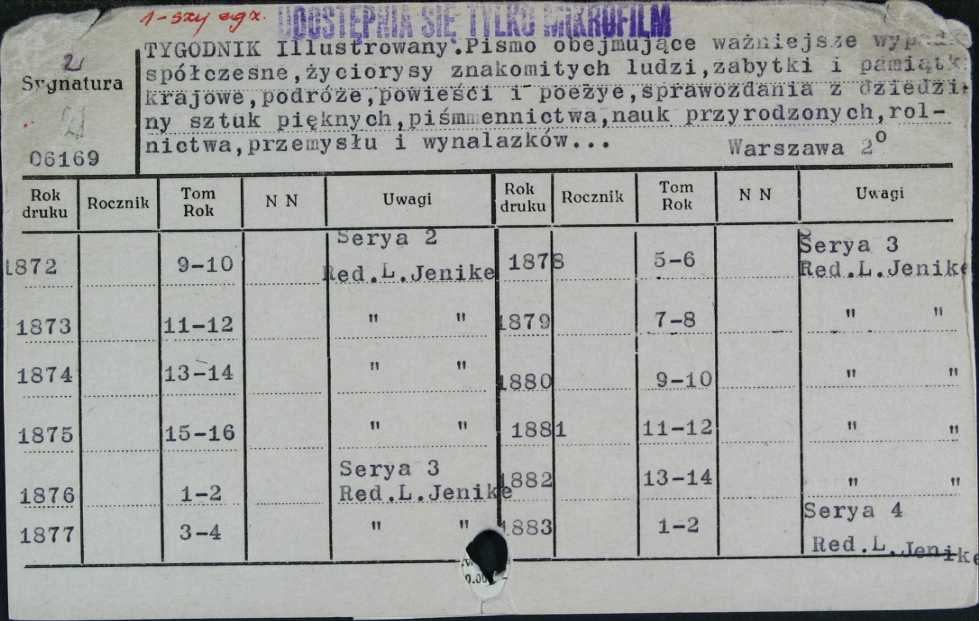 1-szy egz. UDOSTĘPNIA SIĘ TYLKO MIKROFILM
TYGODNIK Illustrowany.Pismo obejmujące ważniejsze
Sygnatura spółczesne,życiorysy znakomitych ludzi,zabytki i pamiątk
krajowe,podróże,powieści i poezye,sprawozdania z dziedzi
ny sztuk pięknych,piśmmennictwa,nauk przyrodzonych,rol-
06169 nictwa,przemysłu i wynalazków... Warszawa 2°
Rok druku Rocznik Tom Rok N N Uwagi Rok druku Rocznik Tom Rok N N Uwagi
1872 9-10 Serya 2 Red.L.Jenike 1878 5-6 Serya 3 Red.L.Jenike
1873 11-12 " " 1879 7-8 " "
1874 13-14 " " 1880 9-10 " "
1875 15-16 " " 1881 11-12 " "
1876 1-2 Serya 3 Red.L.Jenike 1882 13-14 " "
1877 3-4 " " 1883 1-2 Serya 4 Red.L.Jenike